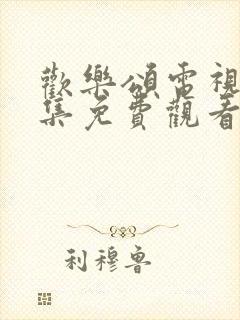 歡樂頌電視
集免費觀看
利穆鲁